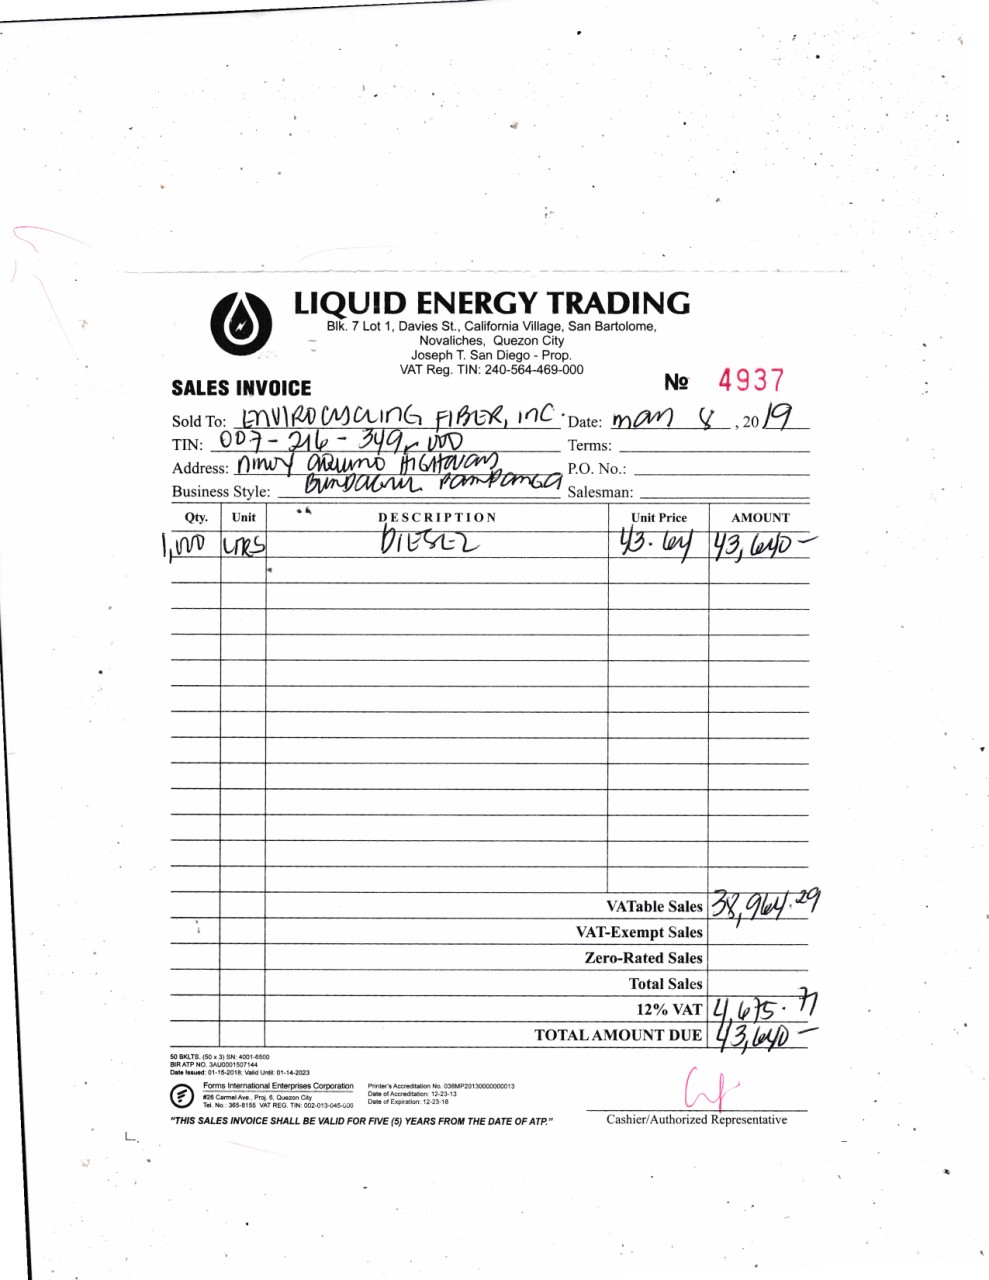 LIQUID ENERGY TRADING
Blk. 7 Lot 1, Davies St., California Village, San Bartolome,
Novaliches, Quezon City
Joseph T. San Diego - Prop.
VAT Reg. TIN: 240-564-469-000
SALES INVOICE
№ 4937
Sold To: ENVIROCYCLING FIBER, INC. Date: MAR 8, 2019
TIN: 007-216-349-000 Terms:
Address: NINOY AQUINO HIGHWAY P.O. No.:
Business Style: PAMPANGA Salesman:
Qty. Unit DESCRIPTION Unit Price AMOUNT
1,000 LTRS DIESEL 43.64 43,640-
VATable Sales 38,964.29
VAT-Exempt Sales
Zero-Rated Sales
Total Sales
12% VAT 4,675.71
TOTAL AMOUNT DUE 43,640-
50 BKLTS. (50 x 3) SN: 4001-6500
BIR ATP NO. 3AU0001507144
Date Issued: 01-15-2018; Valid Until: 01-14-2023
Forms International Enterprises Corporation
#26 Carmel Ave., Proj. 6, Quezon City
Tel. No.: 365-8155 VAT REG. TIN: 002-013-045-000
Printer's Accreditation No. 038MP20130000000013
Date of Accreditation: 12-23-13
Date of Expiration: 12-23-18
"THIS SALES INVOICE SHALL BE VALID FOR FIVE (5) YEARS FROM THE DATE OF ATP."
Cashier/Authorized Representative